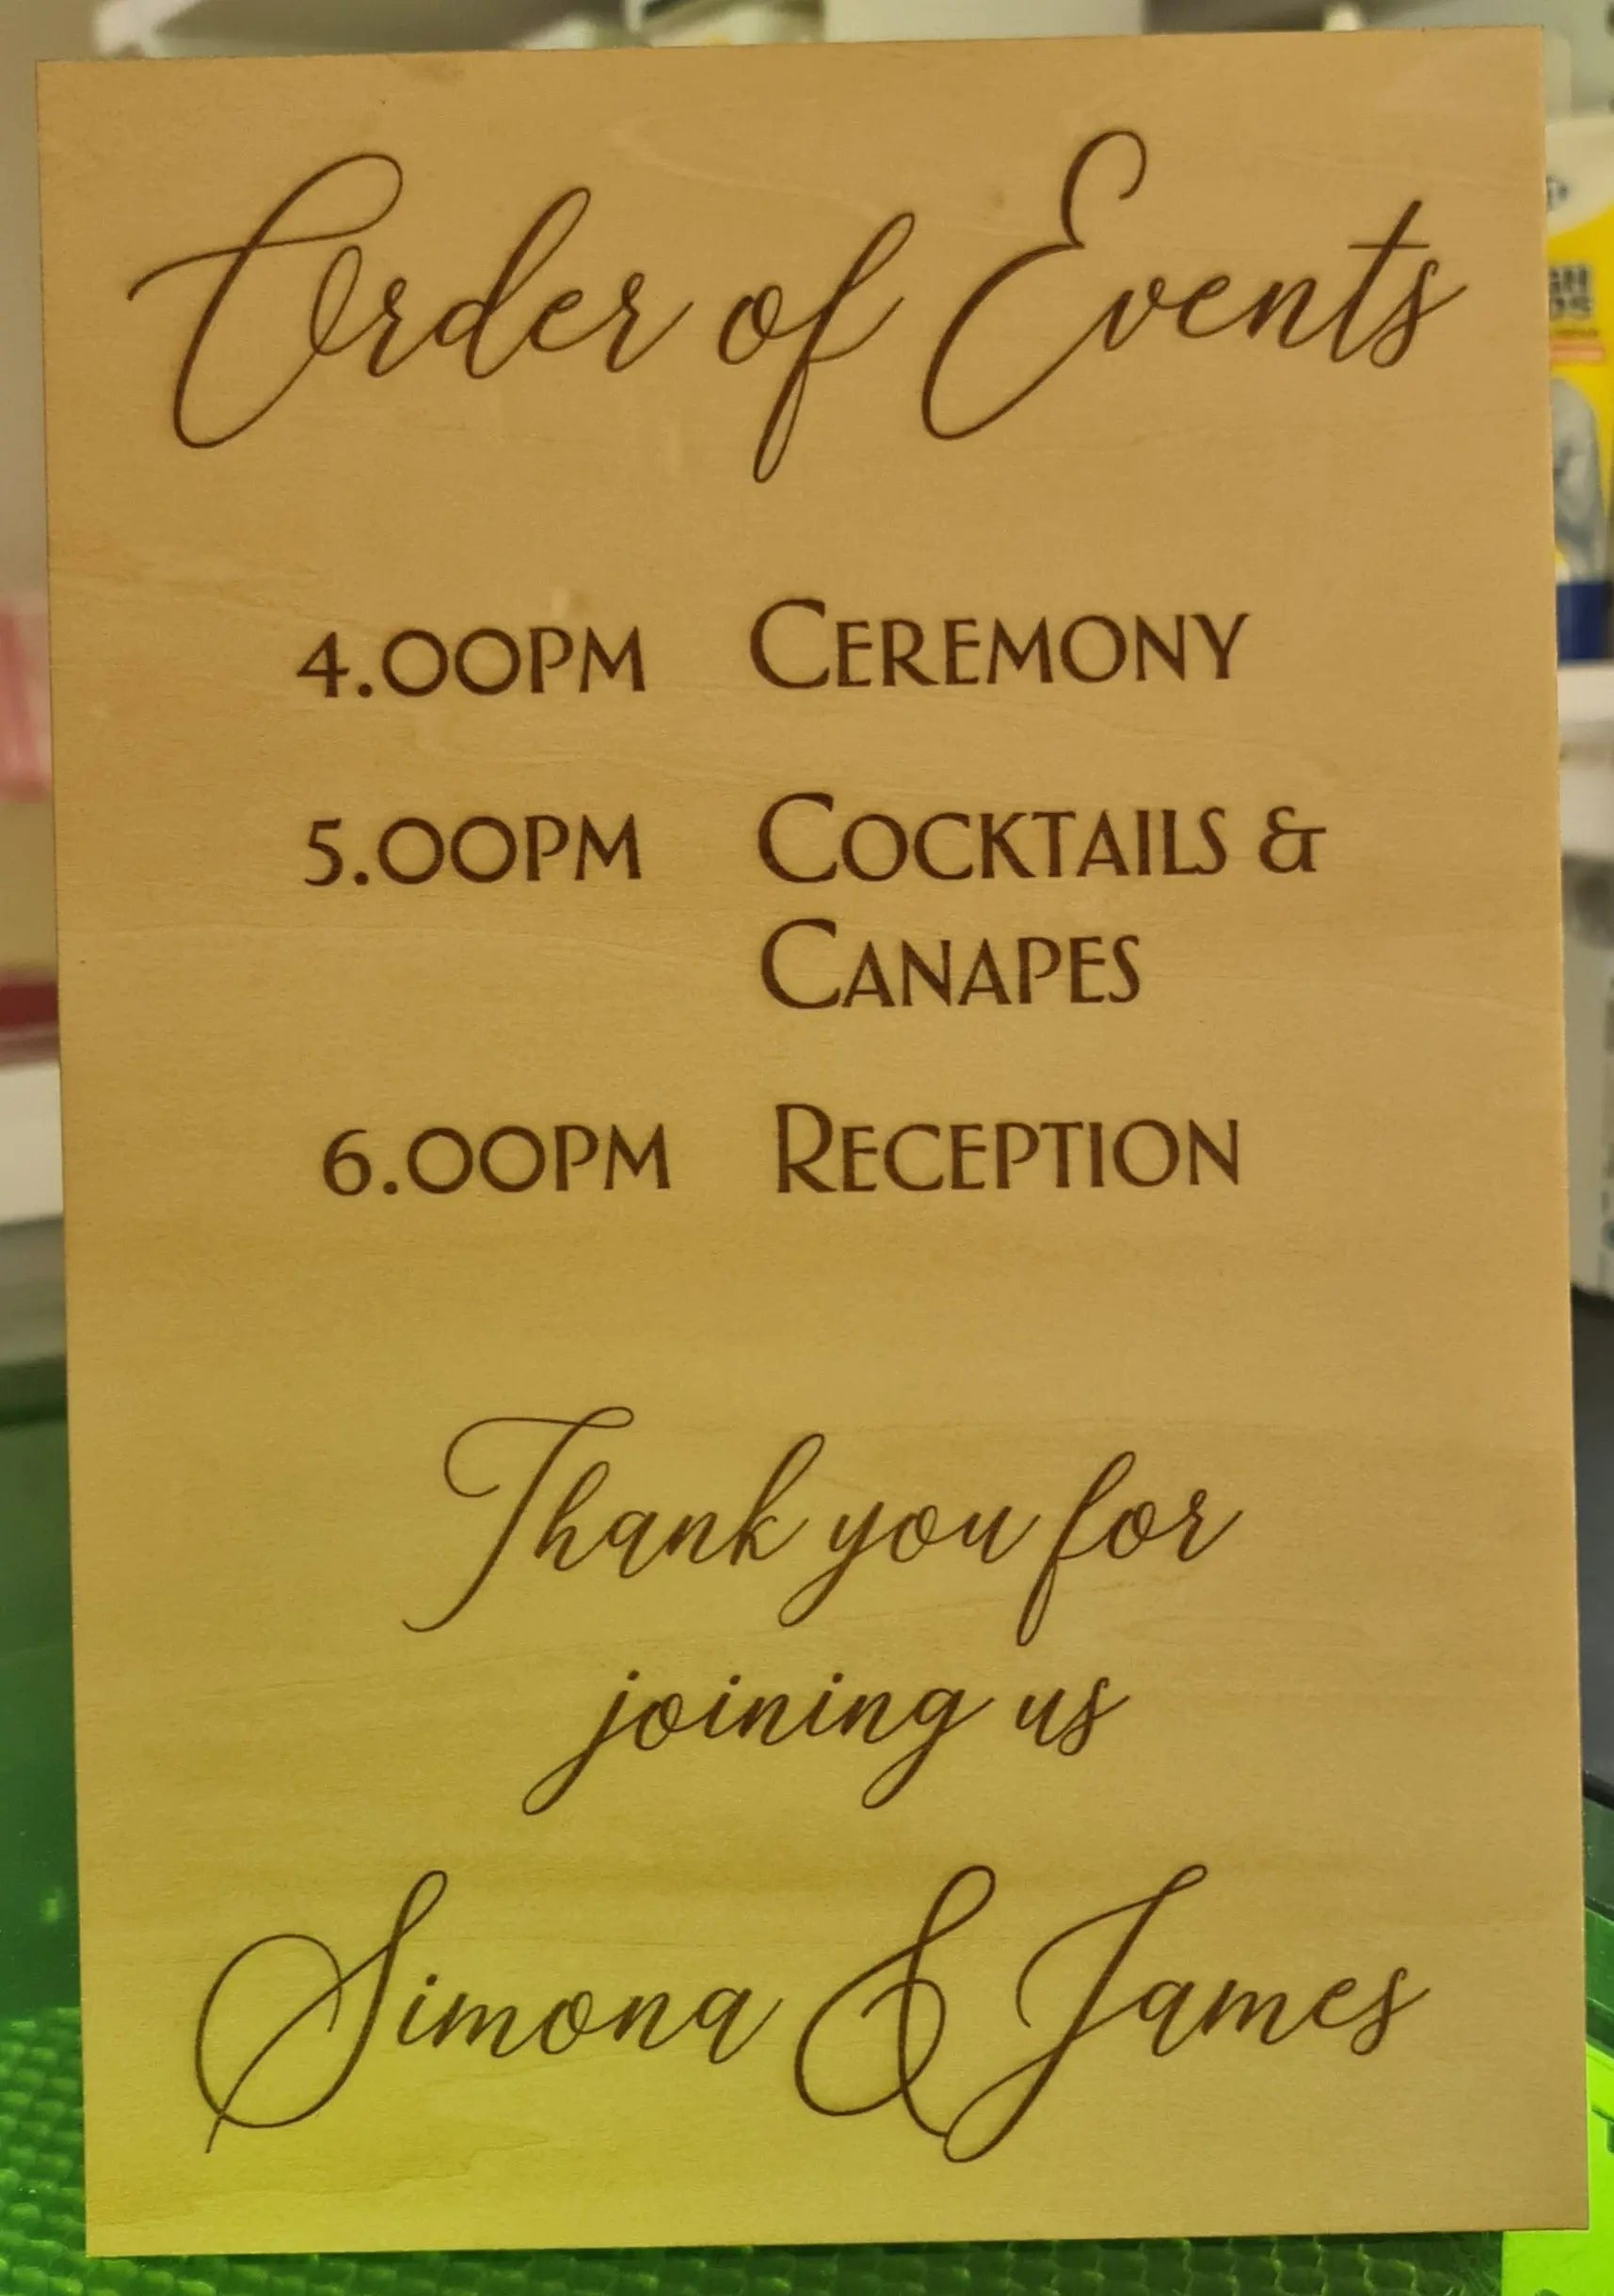 Order of Events
4.00PM CEREMONY
5.00PM COCKTAILS &
CANAPES
6.00PM RECEPTION
Thank you for
joining us
Simona & James